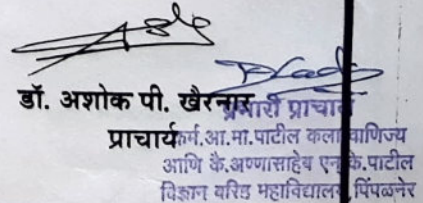 डॉ. अशोक पी. खैरनार
प्राचार्य
प्रभारी प्राचार्य
कर्म.आ.मा.पाटील कला वाणिज्य
आणि कै.अण्णासाहेब एन.के.पाटील
विज्ञान वरिष्ठ महाविद्यालय, पिंपळनेर